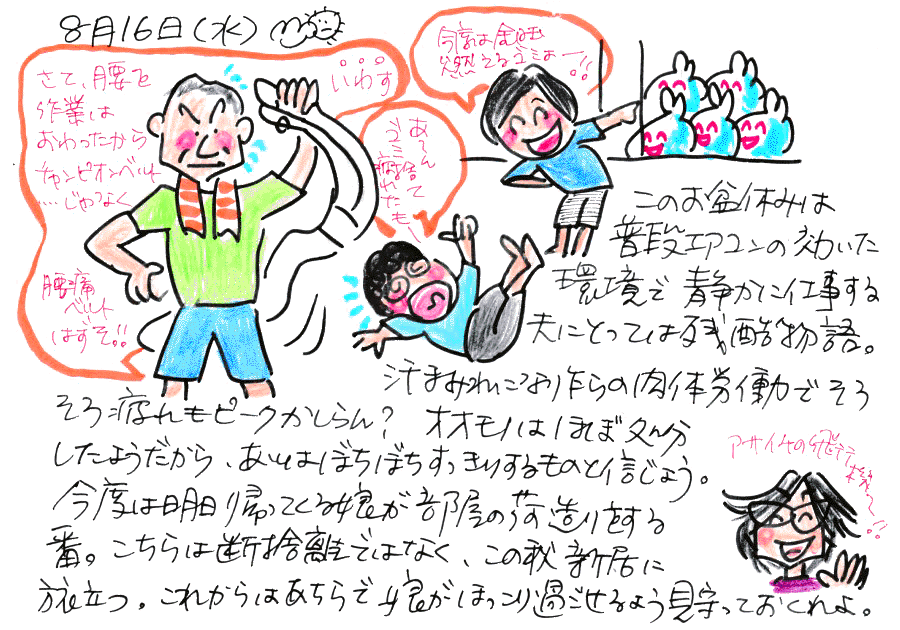 8月16日(水)
さて、腰を
いわす
作業は
おわったから
チャンピオンベルト
…じゃなく
腰痛
ベルト
はずそ!!
あ〜んて
ゴミ
疲れたも〜
今度は金曜
燃えるゴミよー!!
このお盆休みは
普段エアコンの効いた
環境で静かに仕事する
夫にとっては残酷物語。
汗まみれになり乍らの肉体労働でそろ
そろ疲れもピークかしらん? オオモノはほぼ処分
したようだから、あとはぼちぼちすっきりするものと信じよう。
今度は明日帰ってくる娘が部屋の荷造りをする
番。こちらは断捨離ではなく、この秋新居に
旅立つ。これからはあちらで娘がほっこり過ごせるよう見守っておくれよ。
アサイチの飛行
機で〜!!